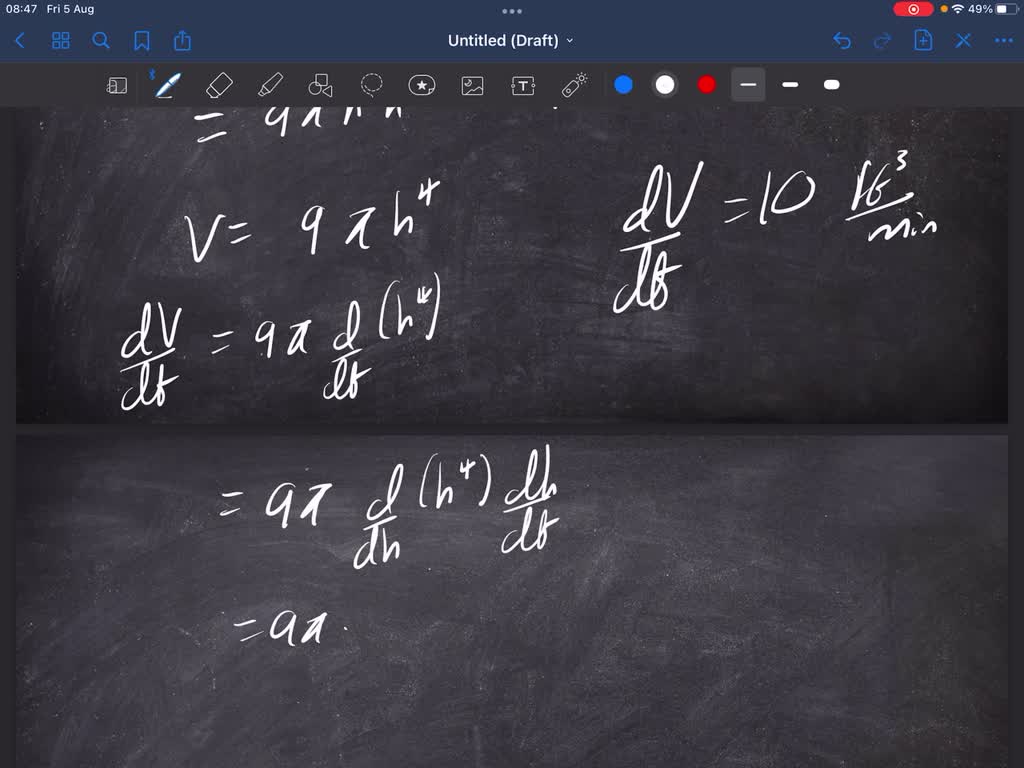 08:47 Fri 5 Aug
49%
Untitled (Draft)
T
V = 9πh⁴
dV/dt = 10 ft³/min
dV/dt = 9π d/dt (h⁴)
= 9π d/dh (h⁴) dh/dt
= 9π.